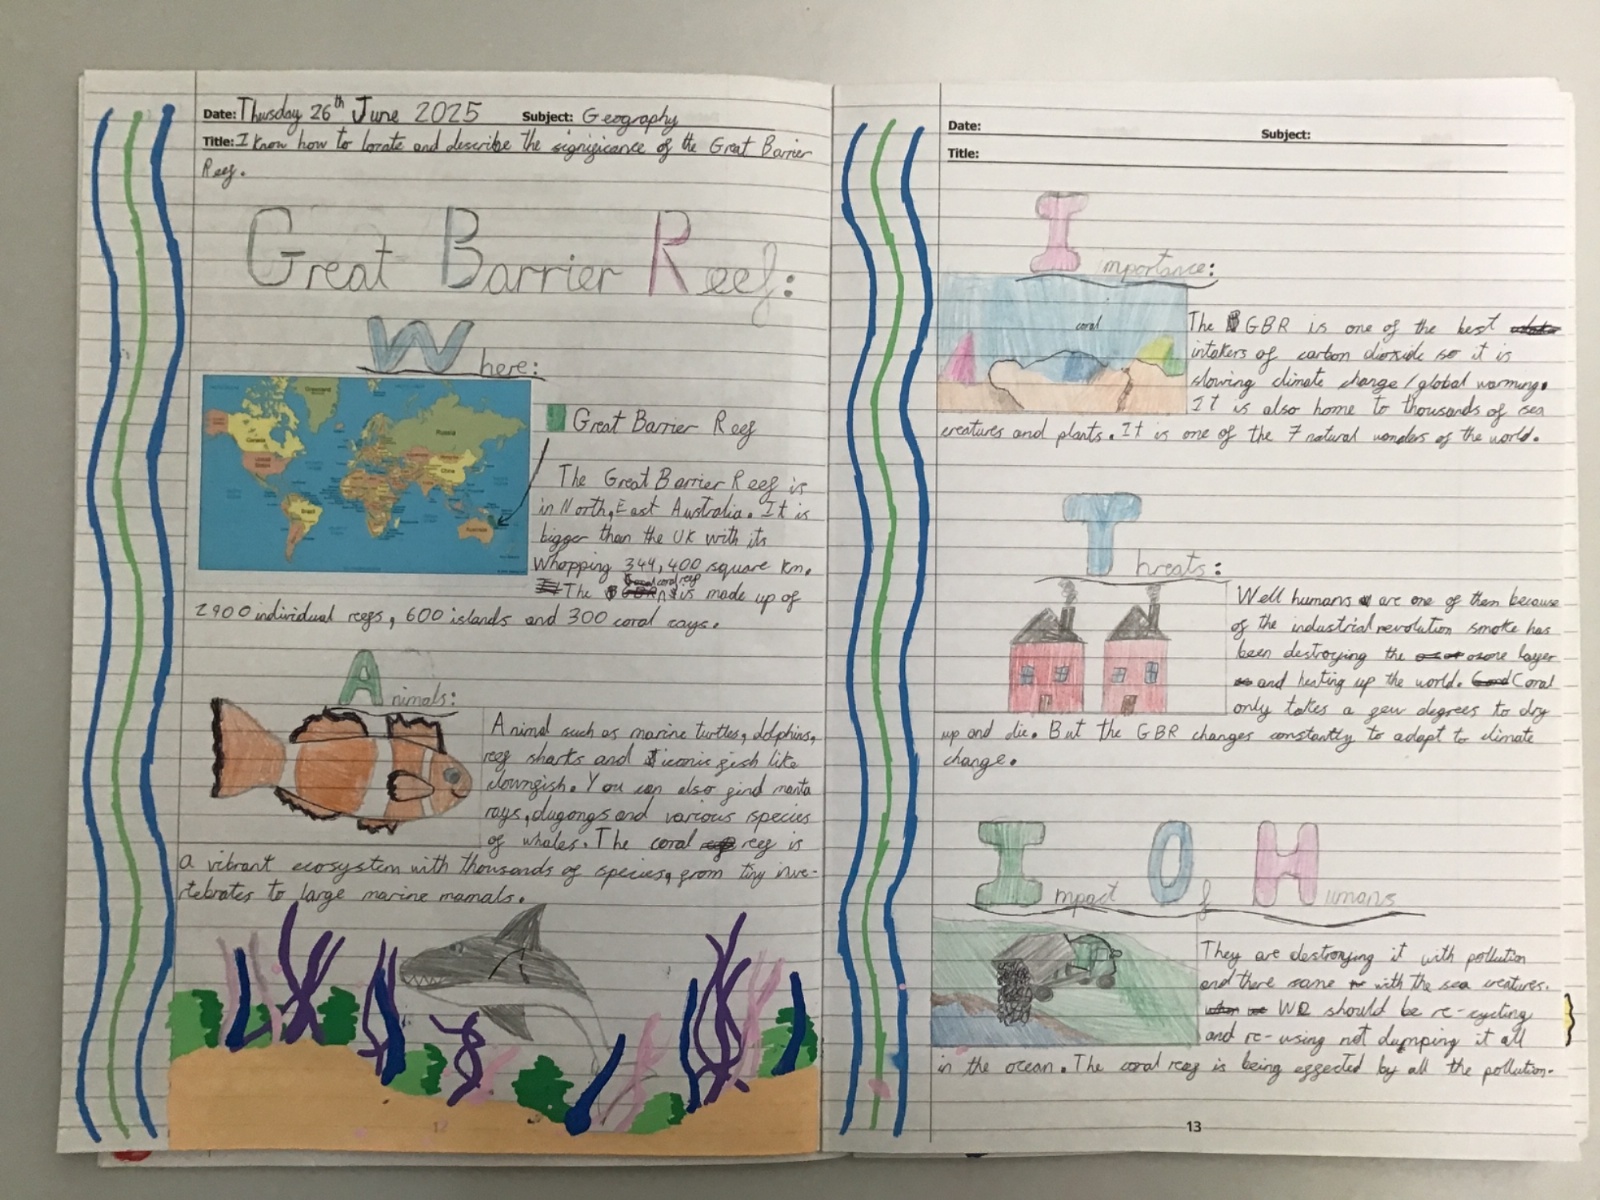 Date: Thursday 26th June 2025 Subject: Geography
Title: I know how to locate and describe the significance of the Great Barrier
Reef.
Great Barrier Reef:
Where:
Great Barrier Reef
The Great Barrier Reef is
in North, East Australia. It is
bigger than the UK with its
Whopping 344,400 square km.
The coral reef is made up of
2900 individual reefs, 600 islands and 300 coral cays.
Animals:
Animal such as marine turtles, dolphins,
reef sharks and iconic fish like
clownfish. You can also find manta
rays, dugongs and various species
of whales. The coral reef is
a vibrant ecosystem with thousands of species, from tiny inve-
rtebrates to large marine mamals.
Date: Subject:
Title:
Importance:
coral
The GBR is one of the best
intakers of carbon dioxide so it is
slowing climate change/global warming.
It is also home to thousands of sea
creatures and plants. It is one of the 7 natural wonders of the world.
Threats:
Well humans are one of them because
of the industrial revolution smoke has
been destroying the ozone layer
and heating up the world. Coral
only takes a few degrees to dry
up and die. But the GBR changes constantly to adapt to climate
change.
Impact Of Humans
They are destroying it with pollution
and there same with the sea creatures.
We should be re-cycling
and re-using not dumping it all
in the ocean. The coral reef is being effected by all the pollution.
13